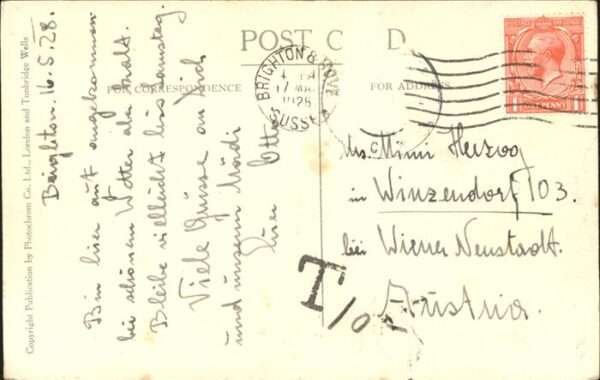 POST C D
FOR CORRESPONDENCE
FOR ADDRESS
Copyright Publication by Photochrom Co., Ltd., London and Tunbridge Wells
Brighton. 16.5.28.
Bin hier gut angekommen
bei schönem Wetter aber kalt.
Bleibe vielleicht bis Samstag.
Viele Grüsse an Dich
und unsern Mädi
Otto
BRIGHTON & HO
17 MA
1928
SUSSEX
PENNY
Mrs. Mimi Herzog
in Winzendorf 103.
bei Wiener Neustadt.
Austria.
T/o